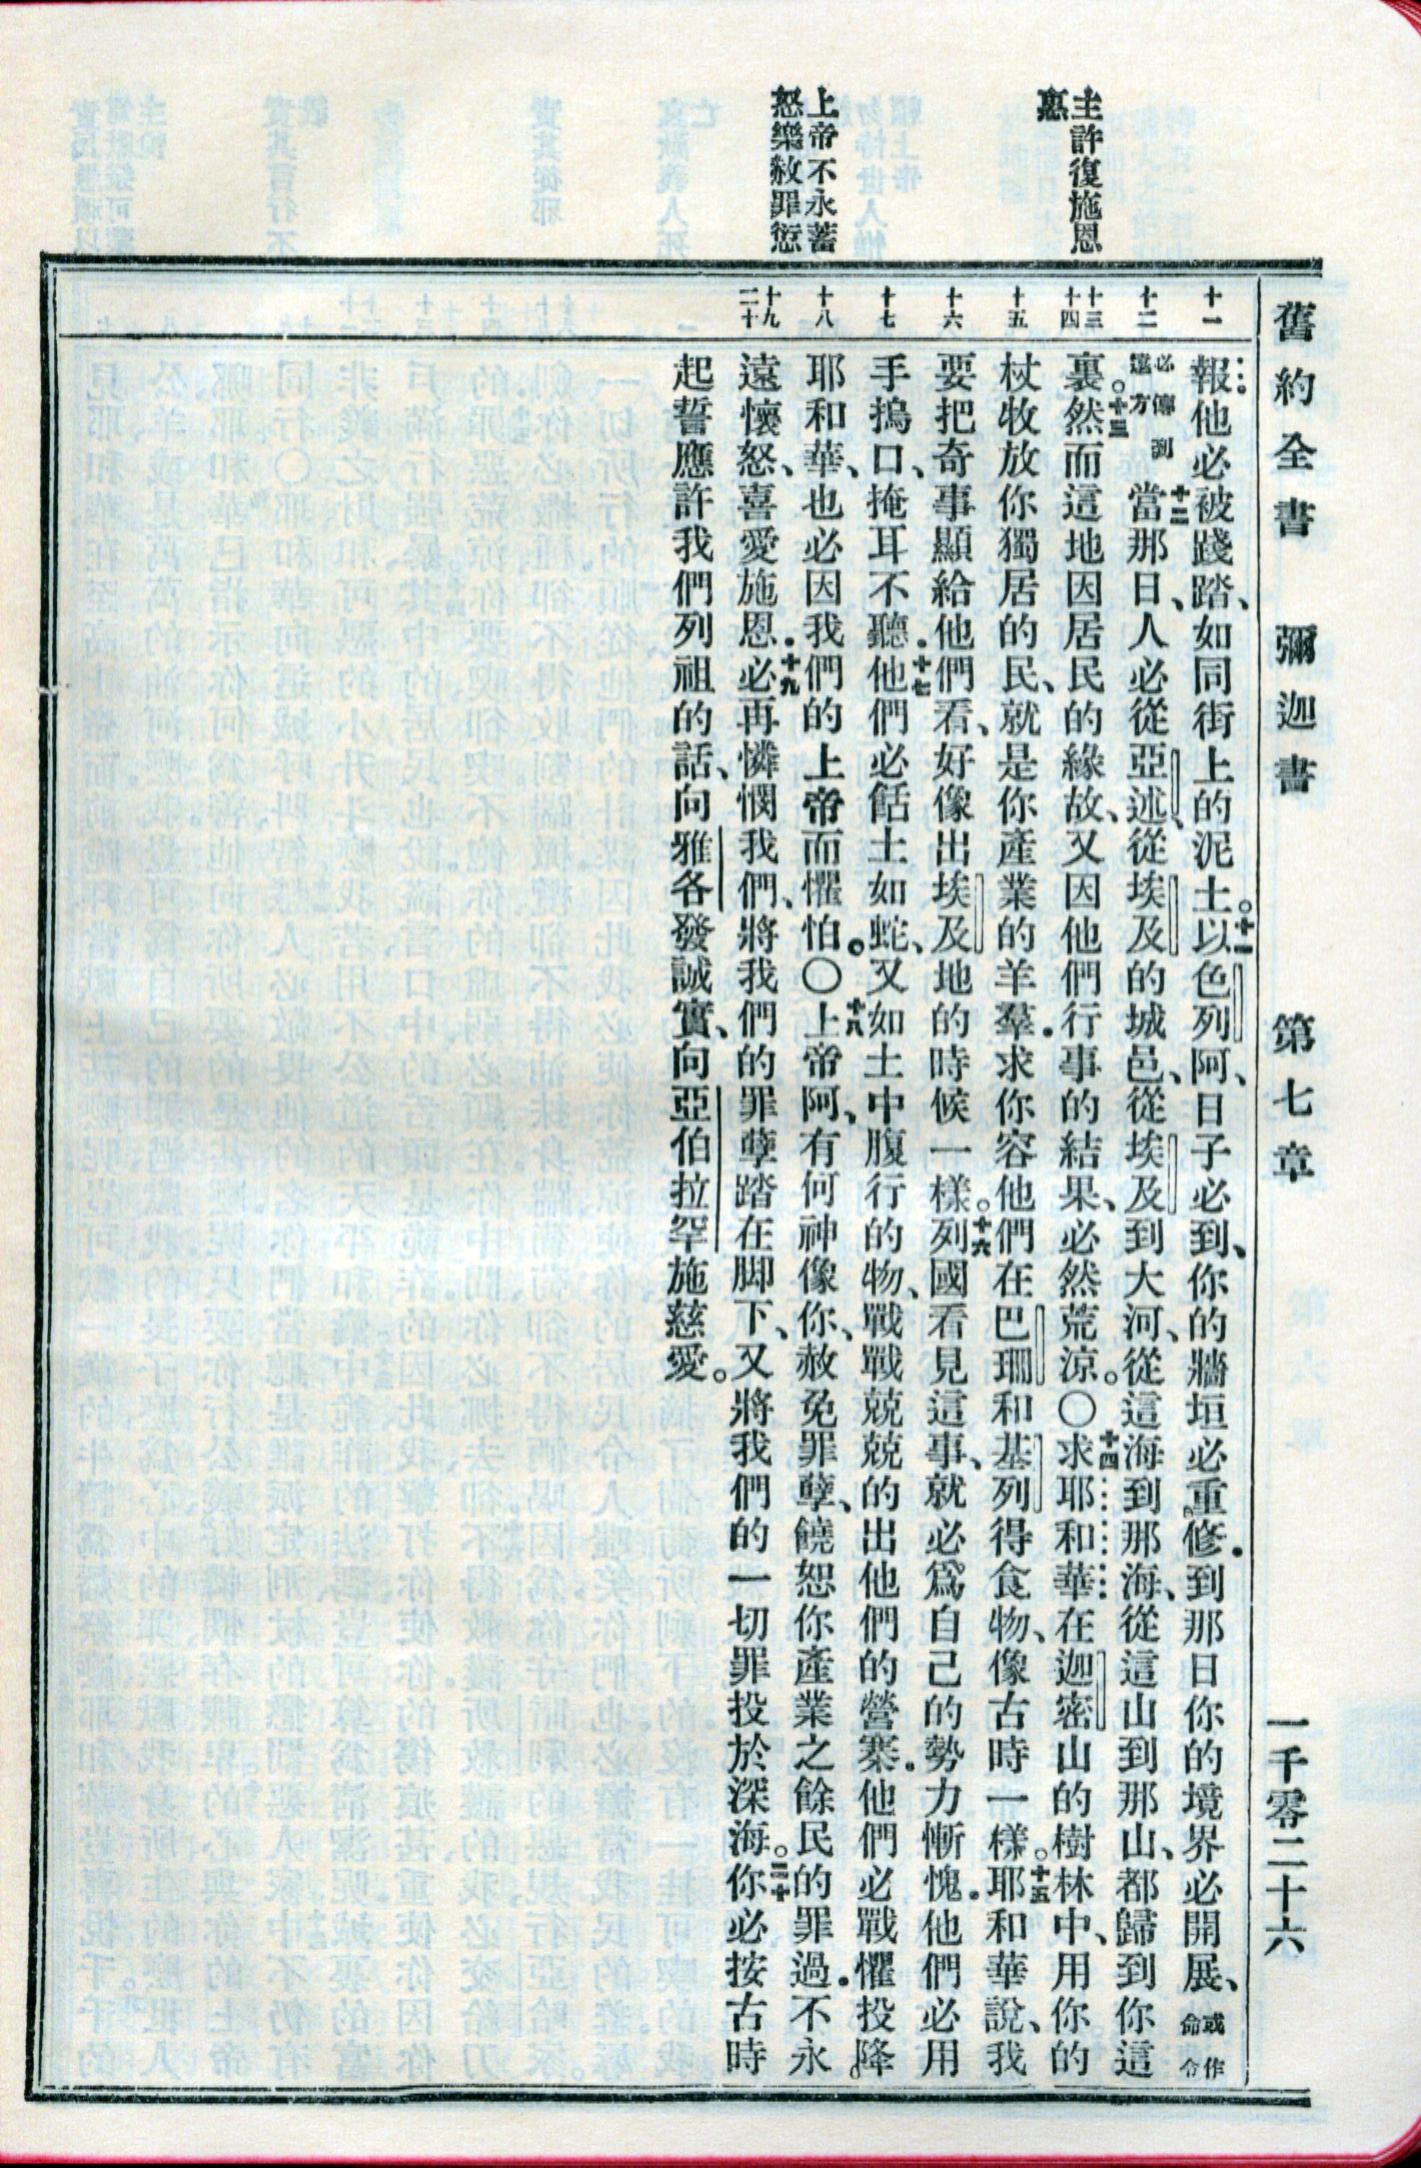 舊約全書 彌迦書 第七章 一千零二十六
主許復施恩
惠
上帝不永蓄
怒樂赦罪愆
十一
十二
十三
十四
十五
十六
十七
十八
十九
二十
報他必被踐踏、如同街上的泥土。十一以色列阿、日子必到、你的牆垣必重修．到那日你的境界必開展、或作命令
必傳到遠方十二當那日、人必從亞述、從埃及的城邑、從埃及到大河、從這海到那海、從這山到那山、都歸到你這
裏。十三然而這地因居民的緣故、又因他們行事的結果、必然荒涼。○十四求耶和華在迦密山的樹林中、用你的
杖牧放你獨居的民、就是你產業的羊羣．求你容他們在巴珊和基列得食物、像古時一樣。十五耶和華說、我
要把奇事顯給他們看、好像出埃及地的時候一樣。十六列國看見這事、就必爲自己的勢力慚愧．他們必用
手摀口、掩耳不聽．十七他們必餂土如蛇、又如土中腹行的物、戰戰兢兢的出他們的營寨．他們必戰懼投降
耶和華、也必因我們的上帝而懼怕。○十八上帝阿、有何神像你、赦免罪孽、饒恕你產業之餘民的罪過．不永
遠懷怒、喜愛施恩．十九必再憐憫我們、將我們的罪孽踏在脚下、又將我們的一切罪投於深海。二十你必按古時
起誓應許我們列祖的話、向雅各發誠實、向亞伯拉罕施慈愛。